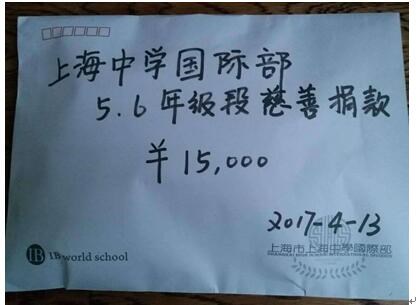 上海中学国际部
5.6年级段慈善捐款
￥15,000
2017-4-13
IB IB world school
上海市上海中學國際部
SHANGHAI HIGH SCHOOL INTERNATIONAL DIVISION